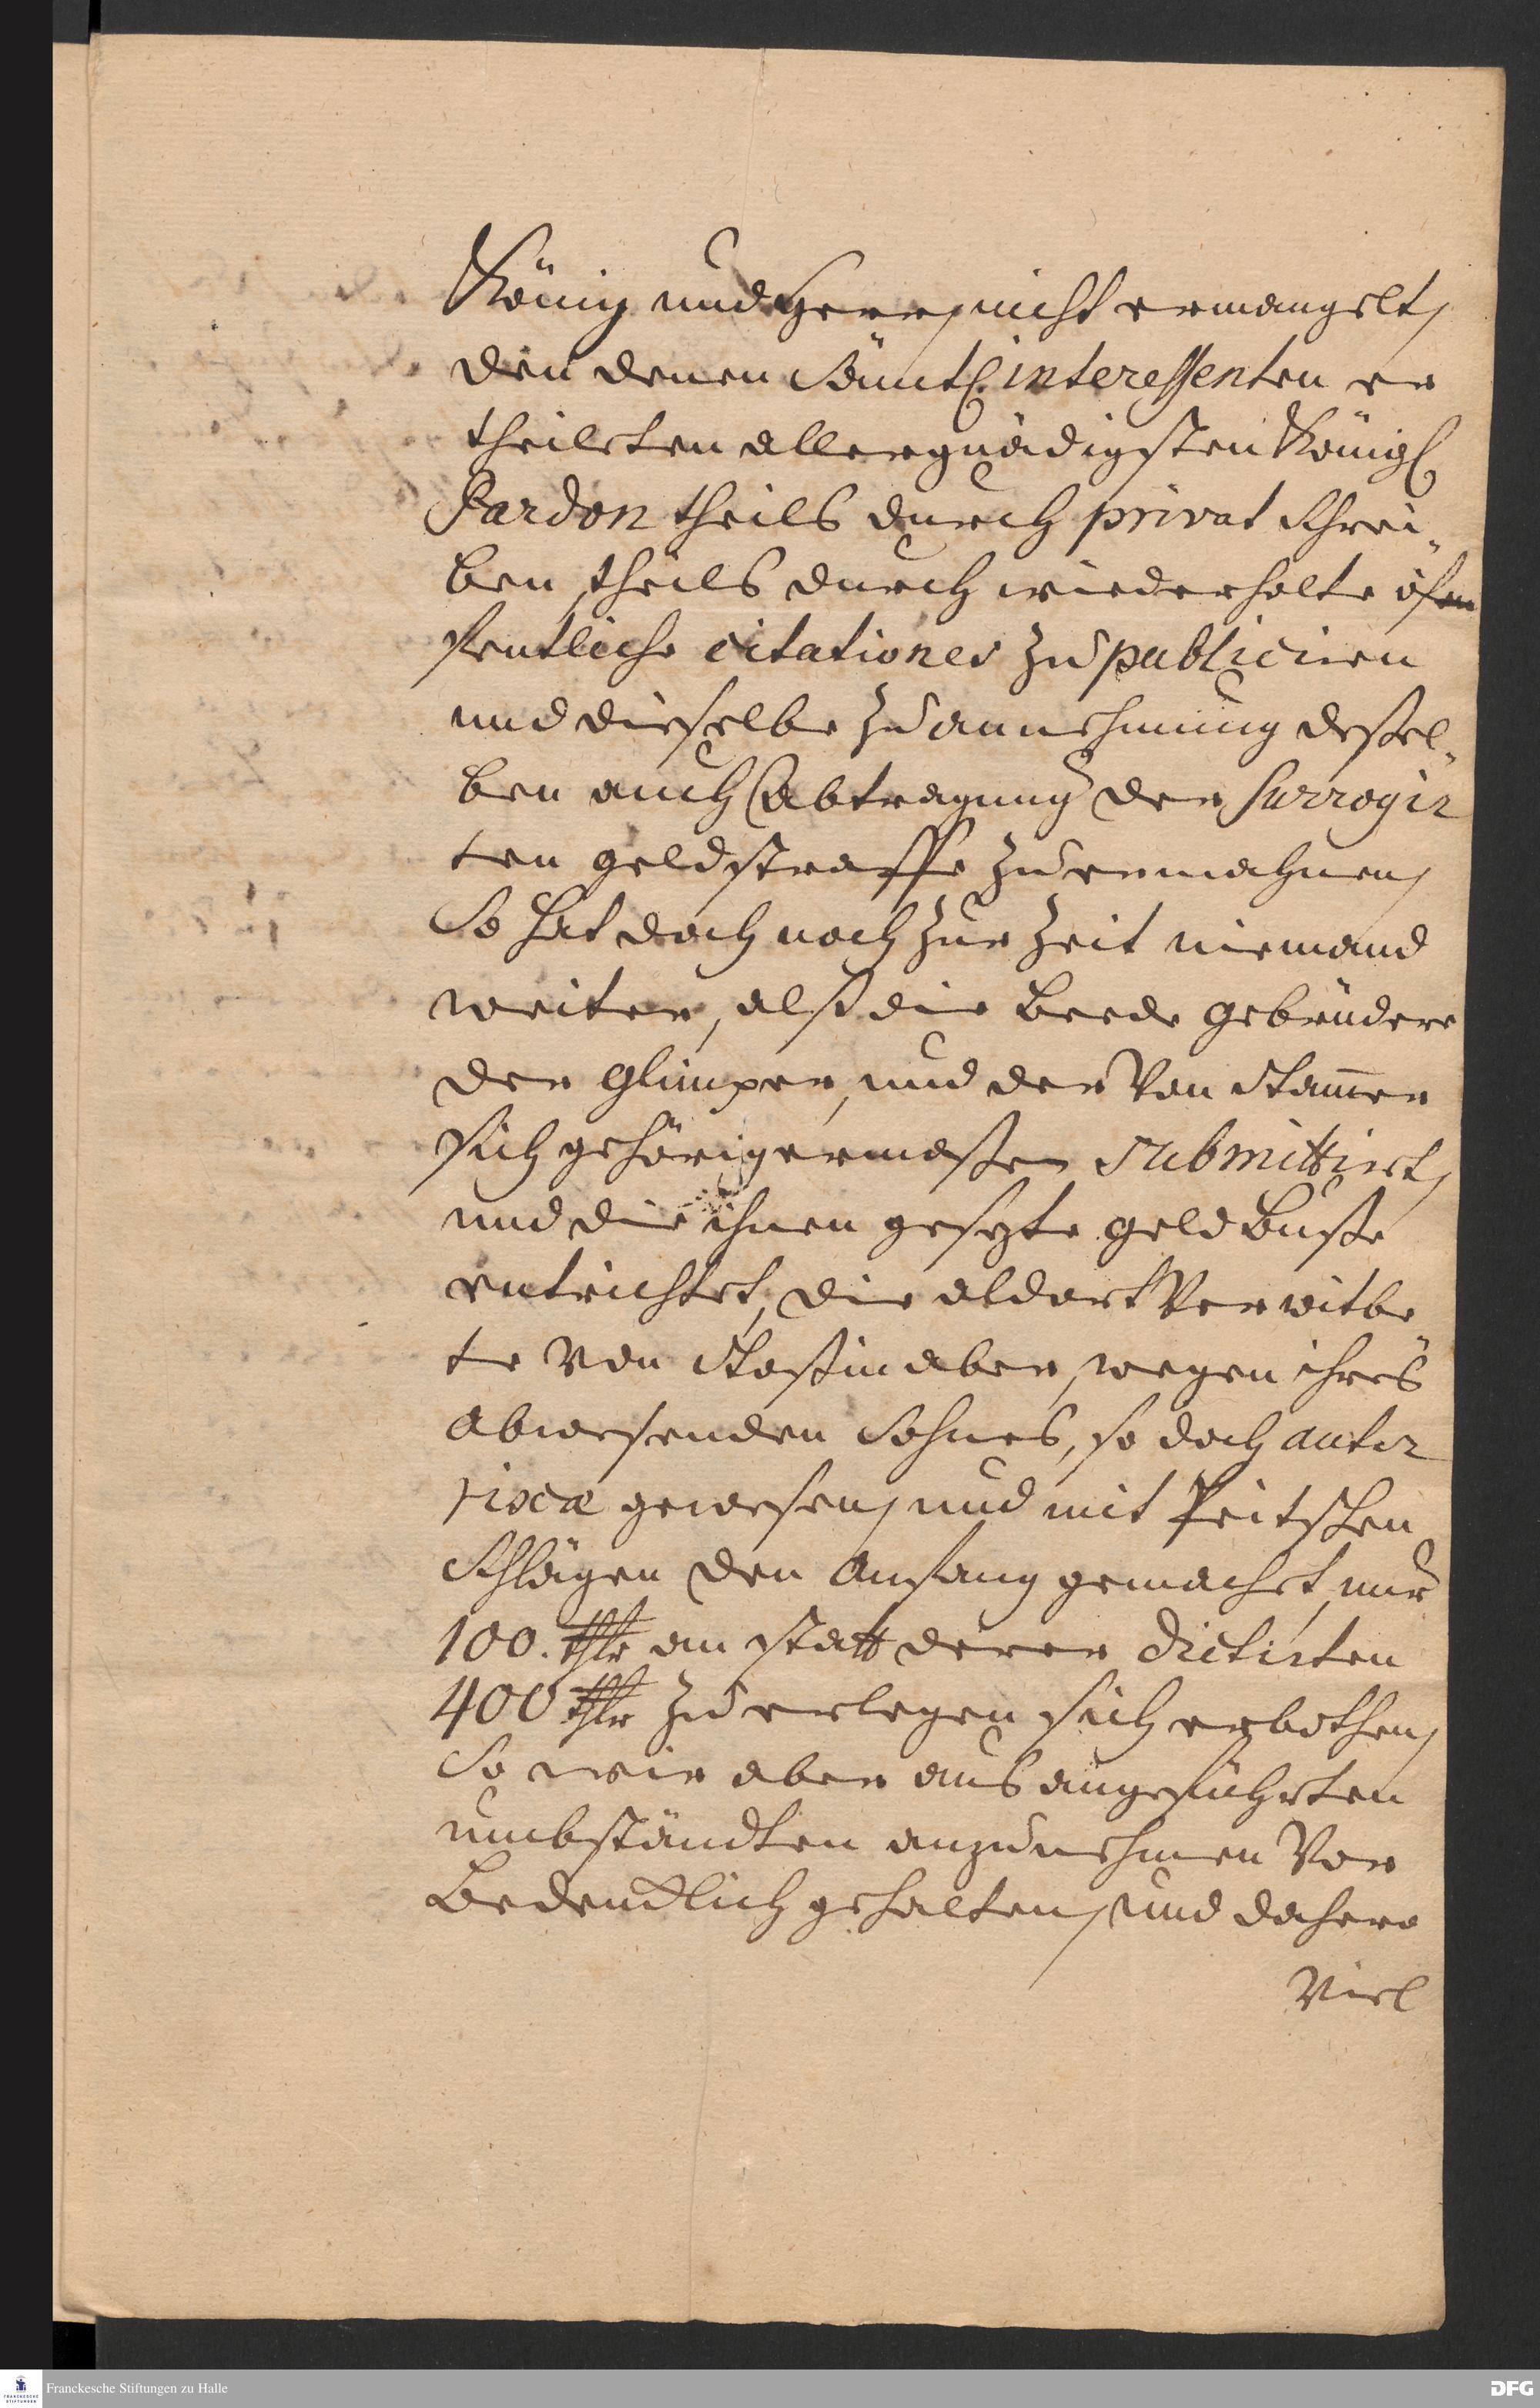 König und Herr, nicht ermangelt,
den denen Sämtl. interessenten er
theileten allergnädigsten Königl.
Pardon theils durch privat Schrei-
ben, theils durch wiederholte öfen
fentliche citationes zu publiciren
und dieselbe zu annehmung deßel-
ben auch Abtragung der surrogir
ten geldstraffe zu ermahnen,
So hat doch noch zur Zeit niemand
weiter, alß die beede gebrüdere
der Glümper, und der Von Stam̄er
sich gehörigermaßen submittiret,
und die ihnen gesezte geld buße
entrichtet, die aldort Verwitbe
te Von Stoßin aber, wegen ihres
abwesenden Sohnes, so doch autor
rixæ gewesen, und mit Peitschen
Schlägen den Anfang gemachet, nur
100. thlr an statt derer dictirten
400 thlr zu erlegen sich erbothen,
So wir aber aus angeführten
umbständten anzunehmen Vor
bedencklich gehalten, und dahero
Viel
Franckesche Stiftungen zu Halle
DFG